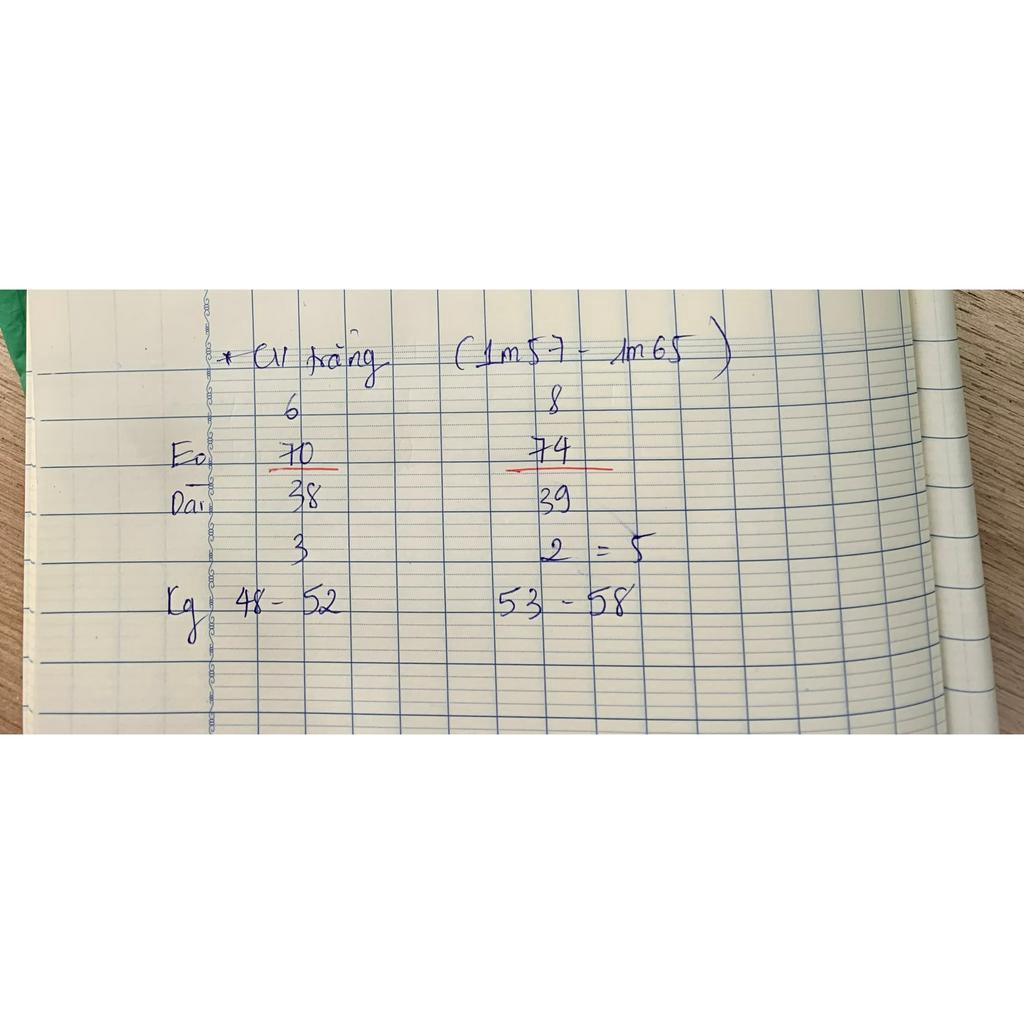 * CV trắng (1m57 - 1m65)
6 8
Eo 70 74
Dài 38 39
3 2 = 5
Kg 48 - 52 53 - 58